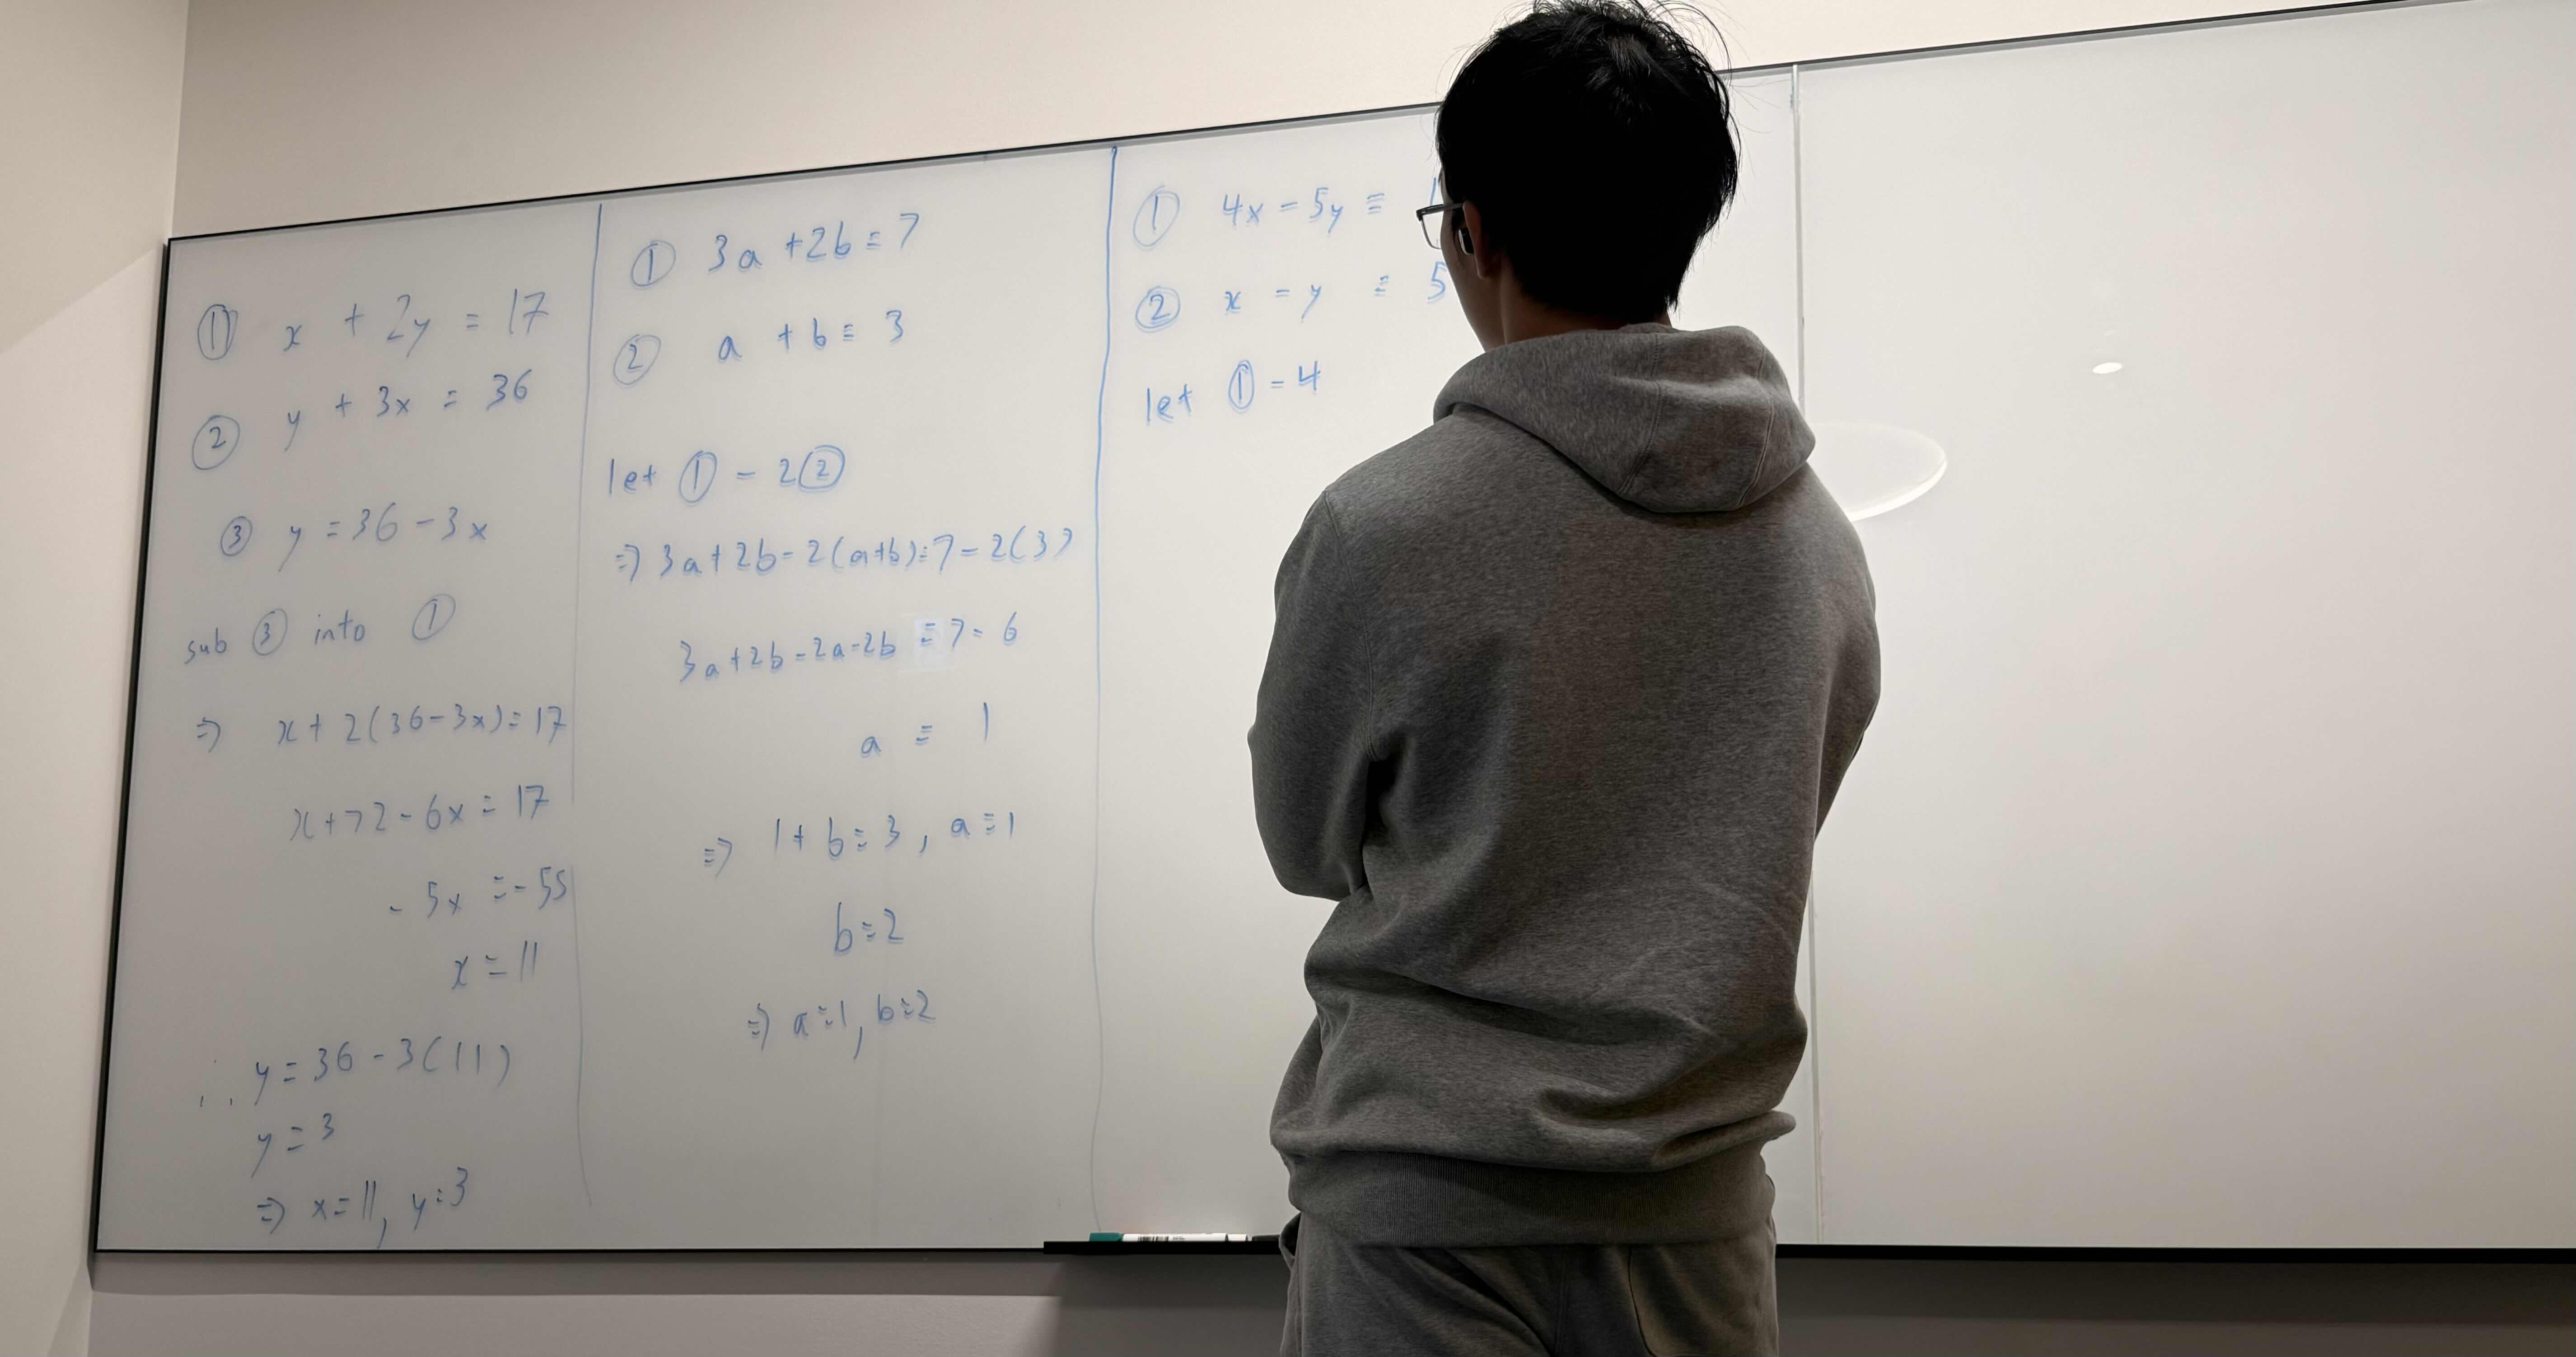 ① x + 2y = 17
② y + 3x = 36
③ y = 36 - 3x
sub ③ into ①
⇒ x + 2(36 - 3x) = 17
x + 72 - 6x = 17
- 5x = - 55
x = 11
∴ y = 36 - 3(11)
y = 3
⇒ x = 11, y = 3
① 3a + 2b = 7
② a + b = 3
let ① - 2②
⇒ 3a + 2b - 2(a + b) = 7 - 2(3)
3a + 2b - 2a - 2b = 7 - 6
a = 1
⇒ 1 + b = 3, a = 1
b = 2
⇒ a = 1, b = 2
① 4x - 5y =
② x - y = 5
let ① - 4